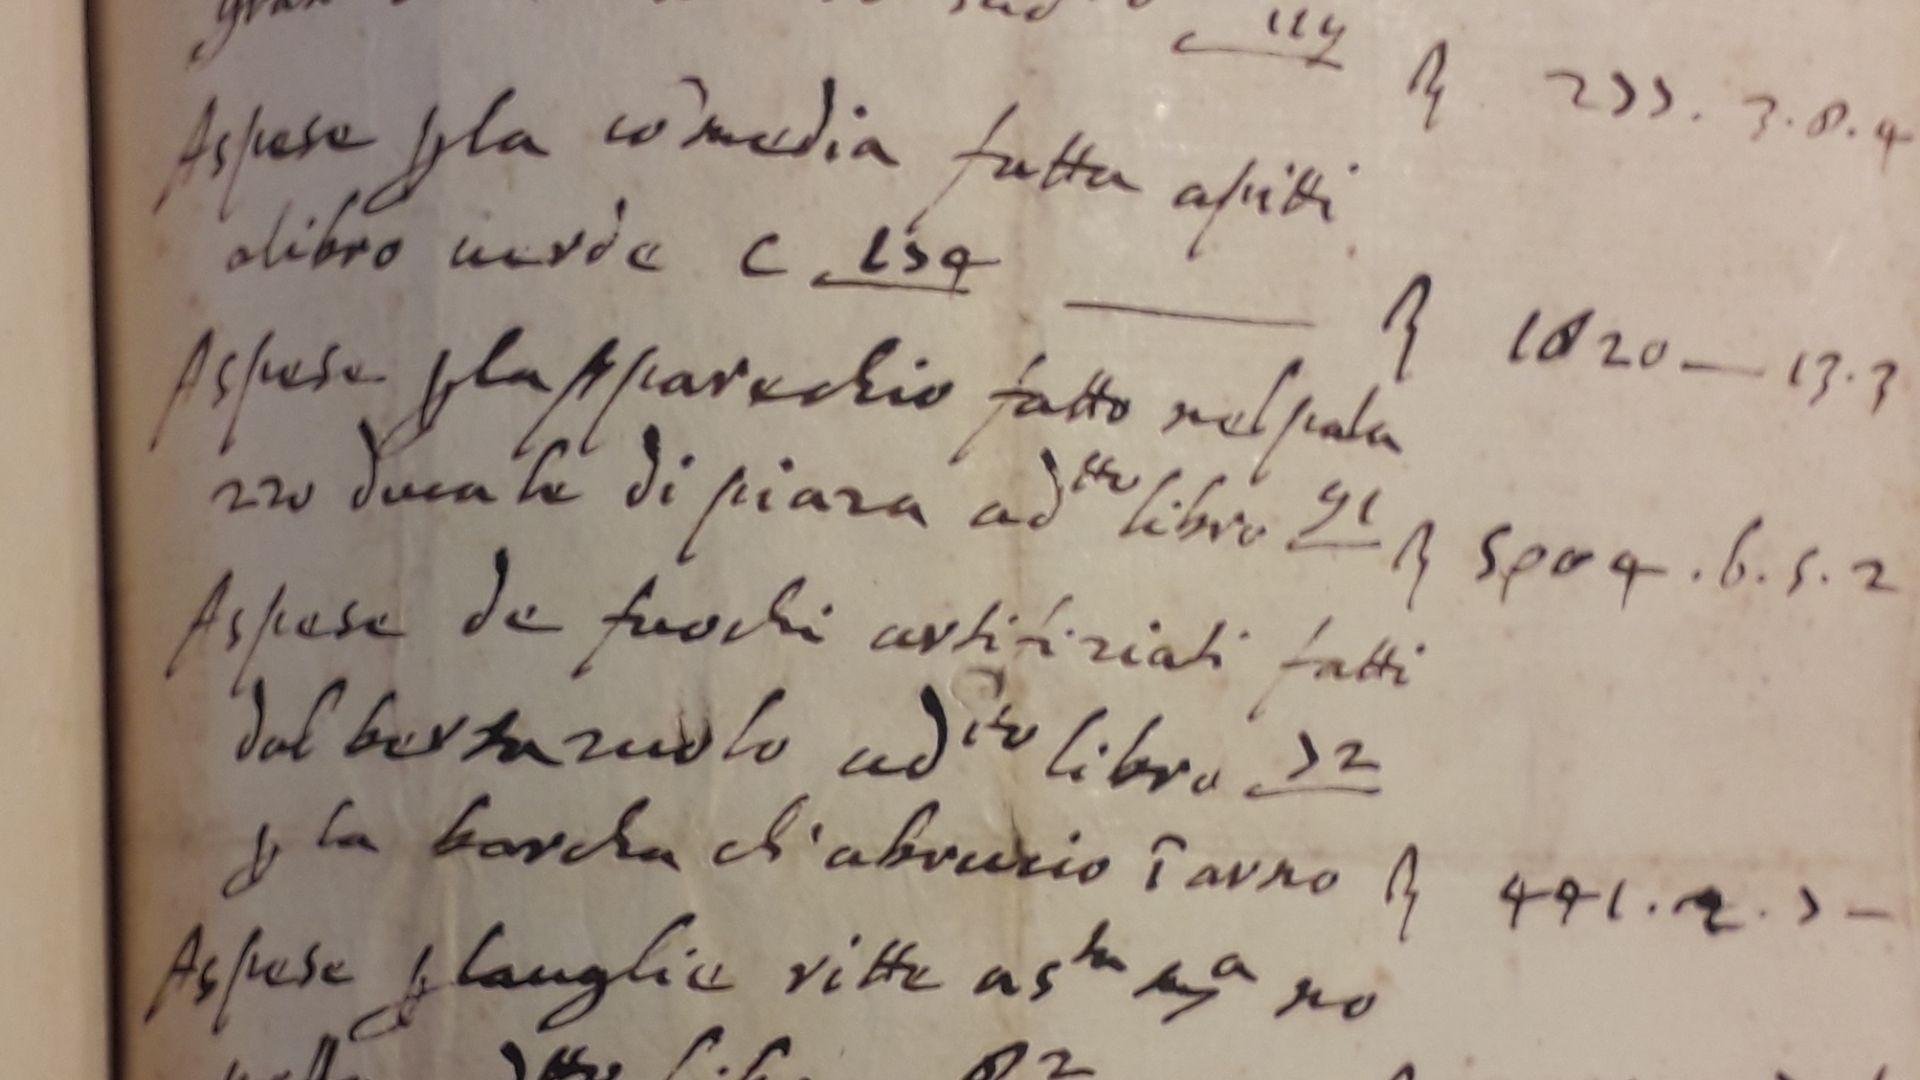 114
▽ 233. 3. 8. 4
Aspese p la cōmedia fatta apitti
alibro uerde c 134 ▽ 1820 — 13.3
Aspese p lapparechio fatto nelpala
zzo ducale di piaza ad tto libro 91 ▽ 5804 . 6. 5. 2
Aspese de fuochi artifiziati fatti
dal bernazuolo ad ito libro 32
p la barcha ch'abrucio ī arno ▽ 441. 2. 3 —
Aspese p lauglie ritte as ta ma no
libro 82